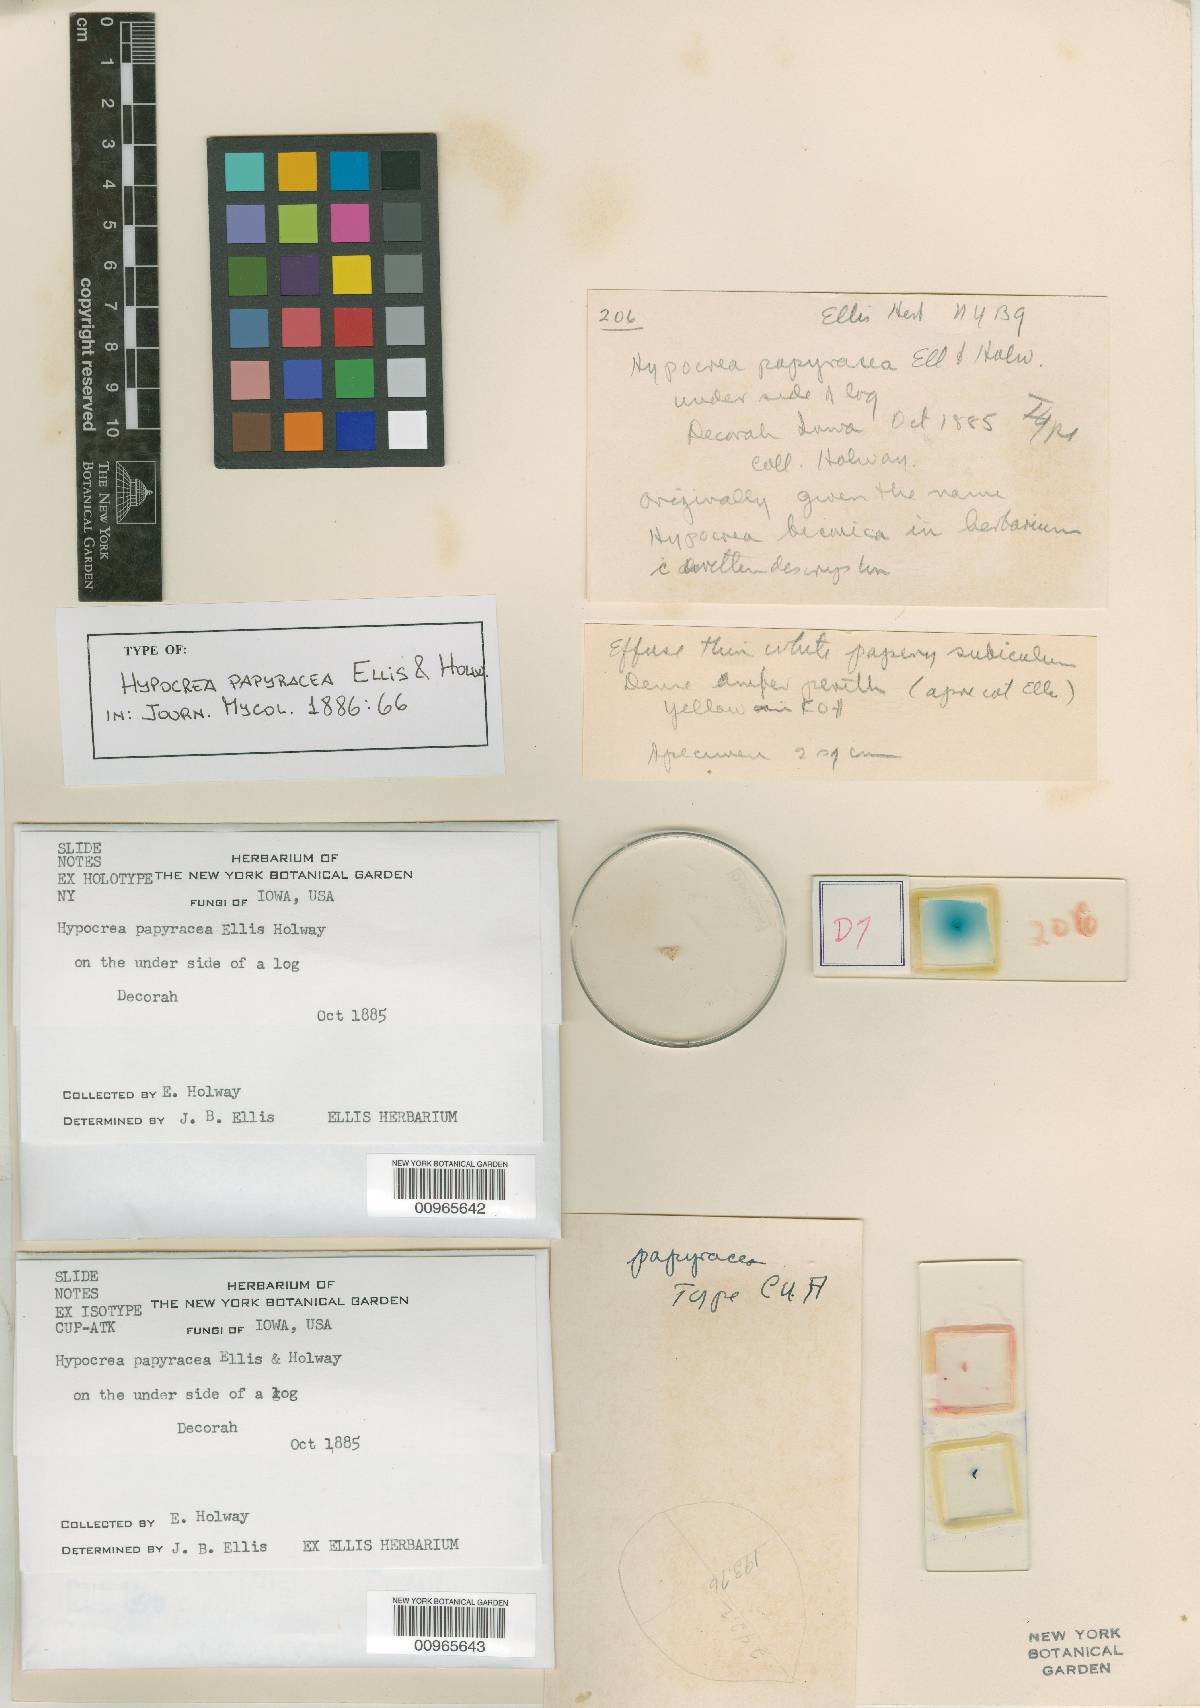 cm
0
1
2
3
4
5
6
7
8
9
10
copyright reserved
THE NEW YORK
BOTANICAL GARDEN
206
Ellis Herb NYBG
Hypocrea papyracea Ell & Holw.
under side of log
Decorah Iowa Oct 1885 Type
Coll. Holway.
originally given the name
Hypocrea in herbarium
c written description
TYPE OF:
HYPOCREA PAPYRACEA ELLIS & HOLW.
IN: JOURN. MYCOL. 1886:66
Effuse thin white papery subiculum
Dense perith (apricot Ells)
Yellow in KOH
Specimen 2 sq cm
SLIDE
NOTES
EX HOLOTYPE
NY
HERBARIUM OF
THE NEW YORK BOTANICAL GARDEN
FUNGI OF IOWA, USA
Hypocrea papyracea Ellis Holway
on the under side of a log
Decorah
Oct 1885
COLLECTED BY E. Holway
DETERMINED BY J. B. Ellis ELLIS HERBARIUM
NEW YORK BOTANICAL GARDEN
00965642
D7
206
SLIDE
NOTES
EX ISOTYPE
CUP-ATK
HERBARIUM OF
THE NEW YORK BOTANICAL GARDEN
FUNGI OF IOWA, USA
Hypocrea papyracea Ellis & Holway
on the under side of a log
Decorah
Oct 1885
COLLECTED BY E. Holway
DETERMINED BY J. B. Ellis EX ELLIS HERBARIUM
NEW YORK BOTANICAL GARDEN
00965643
papyracea
Type
NEW YORK
BOTANICAL
GARDEN